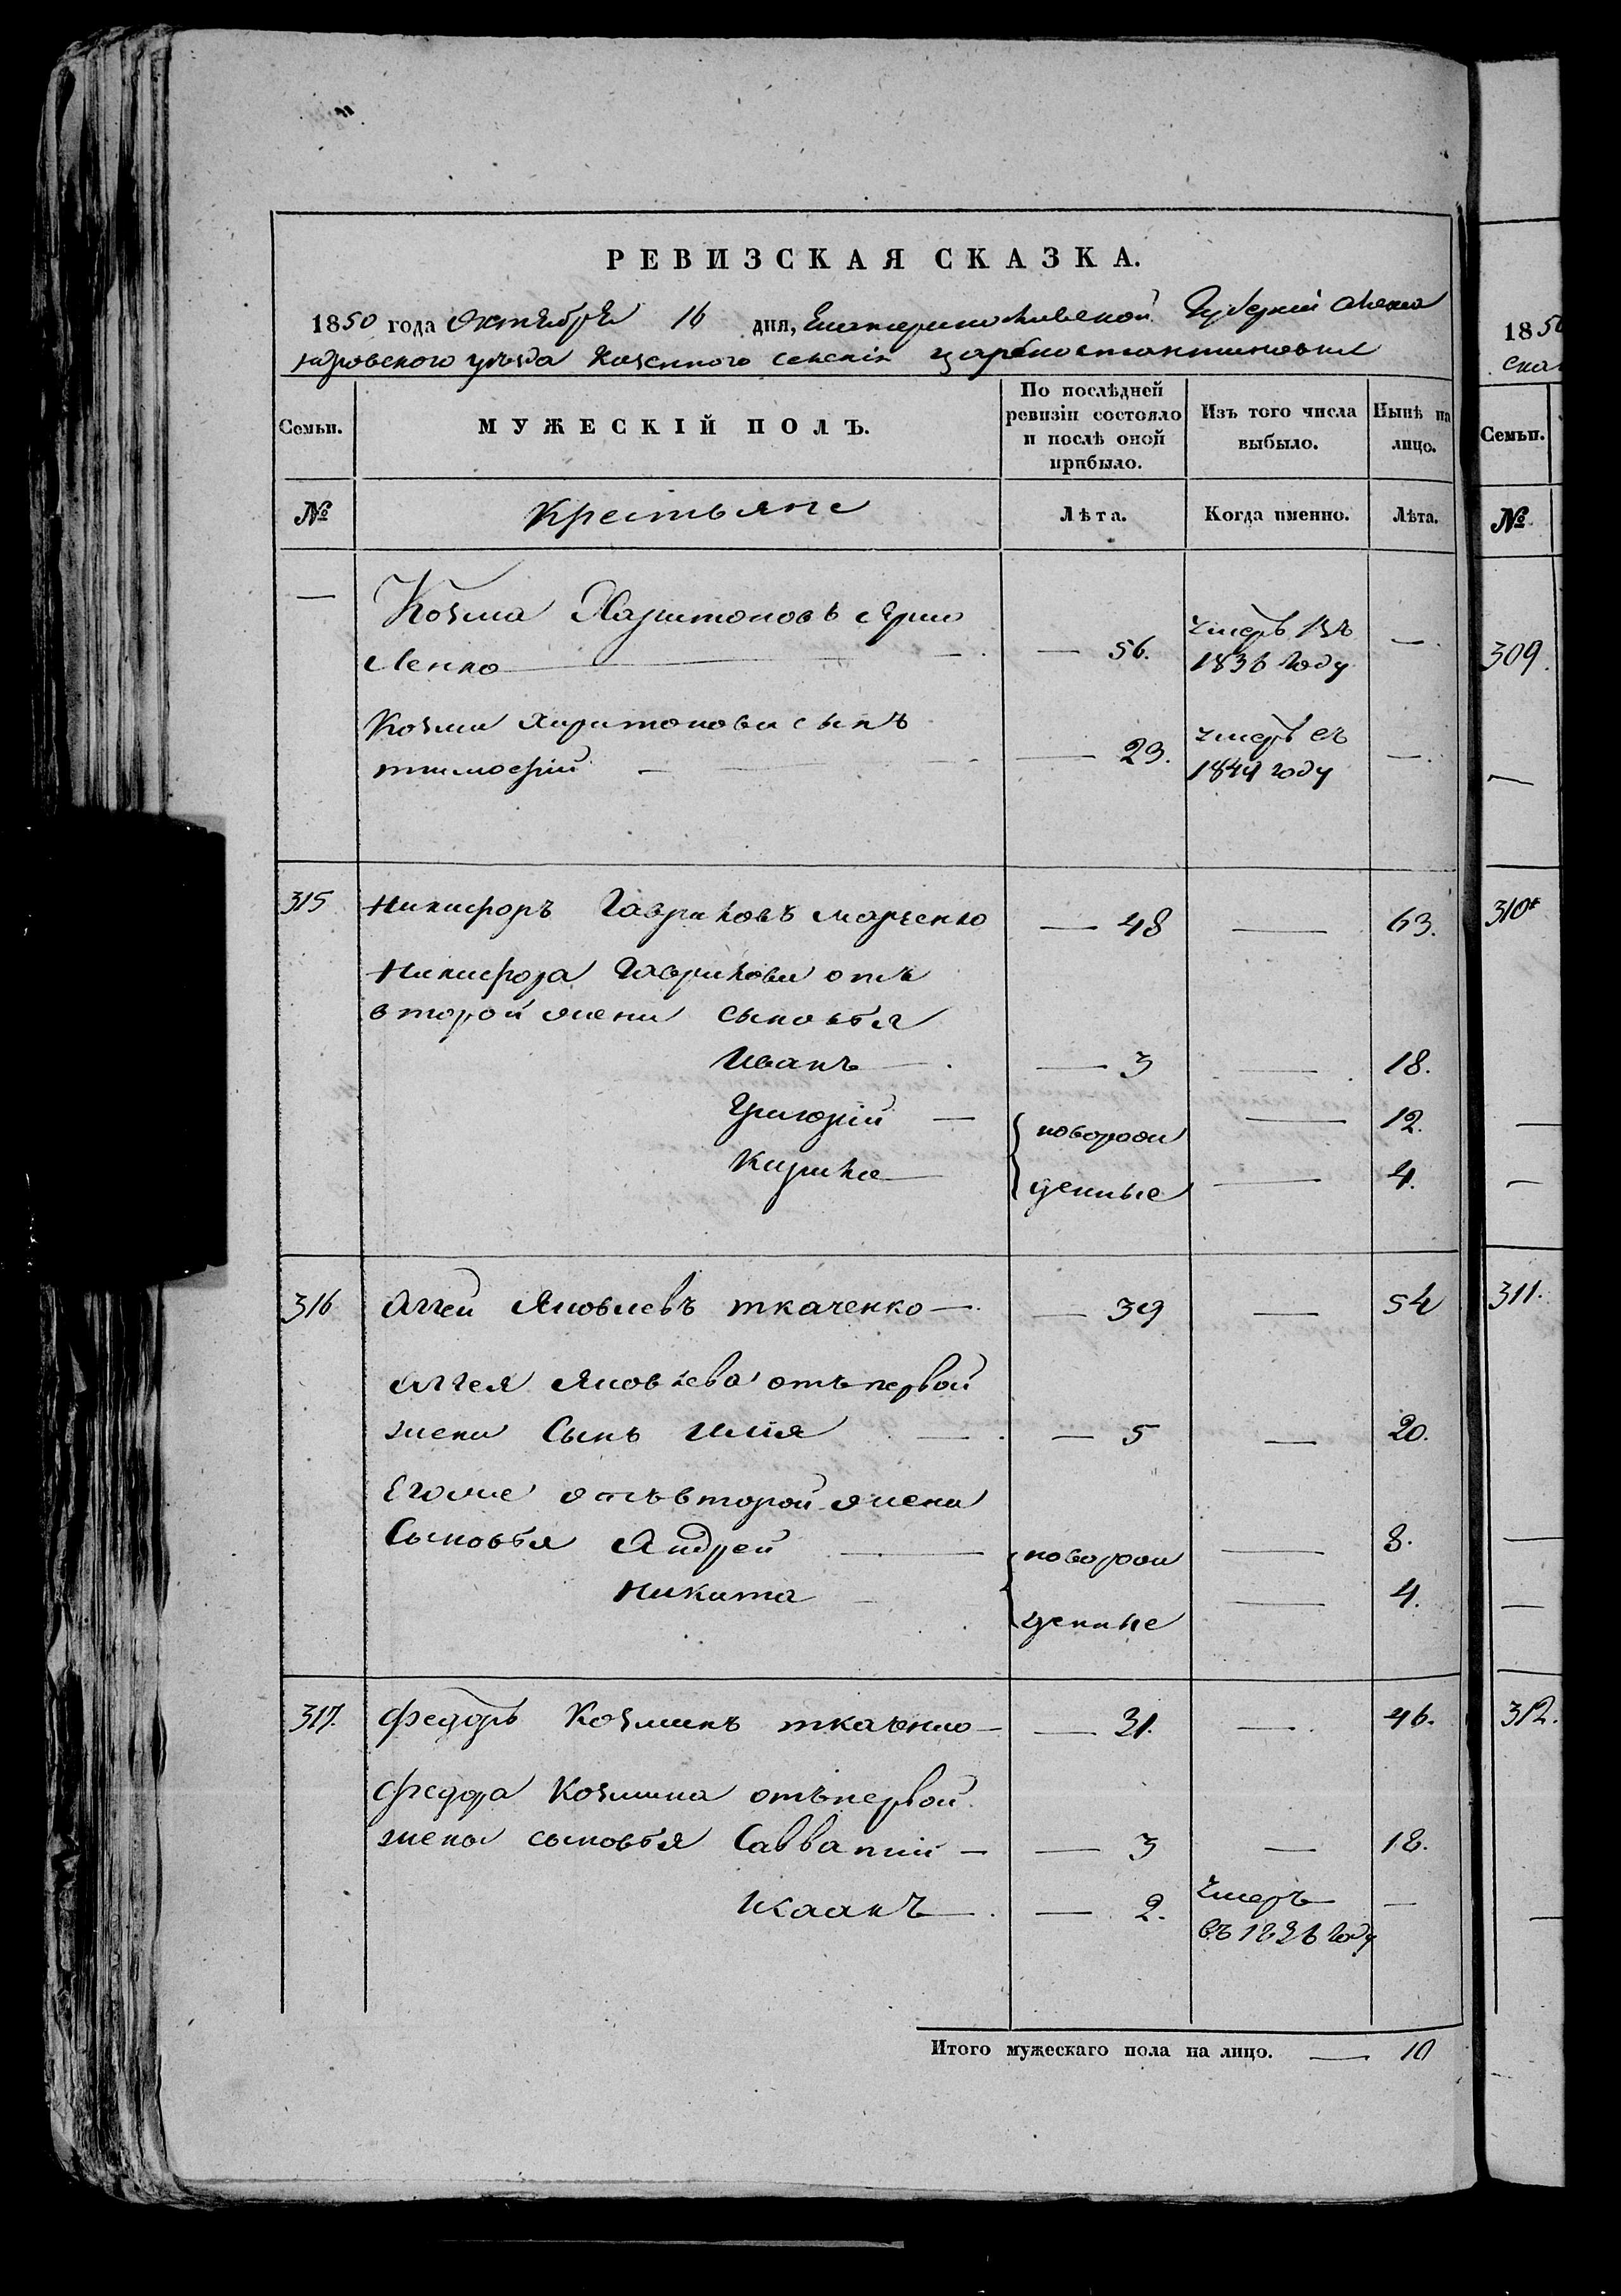 РЕВИЗСКАЯ СКАЗКА.
1850 года Октября 16 дня, Екатеринославской Губерніи Алекса
ндровского уѣзда Казенного селенія Царбконстантиновки
Семьи. МУЖЕСКІЙ ПОЛЪ. По послѣдней ревизіи состояло и послѣ оной прибыло. Изъ того числа выбыло. Нынѣ на лицо.
№ Крестьяне Лѣта. Когда именно. Лѣта.
— Козма Харитоновъ Ярмо
ленко — 56. умеръ въ 1836 году —
Козмы Харитонова сынъ
тимофѣй — 29. умеръ въ 1844 году —
315 Никифоръ Гавриловъ Марченко — 48 — 63.
Никифора Гаврилова отъ
второй жены сыновья
Иванъ — 3 — 18.
Григорій — новорож — 12.
Кирила — денные — 4.
316 Аггей Яковлевъ ткаченко — 39 — 54
Аггея Яковлева отъ первой
жены Сынъ Илія — 5 — 20.
Егоже отъ второй жены
Сыновья Андрей — новорож — 8.
Никита — денные — 4.
317. Федоръ Козминъ ткаченко — 31. — 46.
Федора Козмина отъ первой
жены сыновья Савватий — 3 — 18.
Исаакъ — 2. Умеръ въ 1836 году —
Итого мужескаго пола на лицо. — 10
1850
Семьи.
№
309.
—
310
—
—
311.
—
—
312.
—